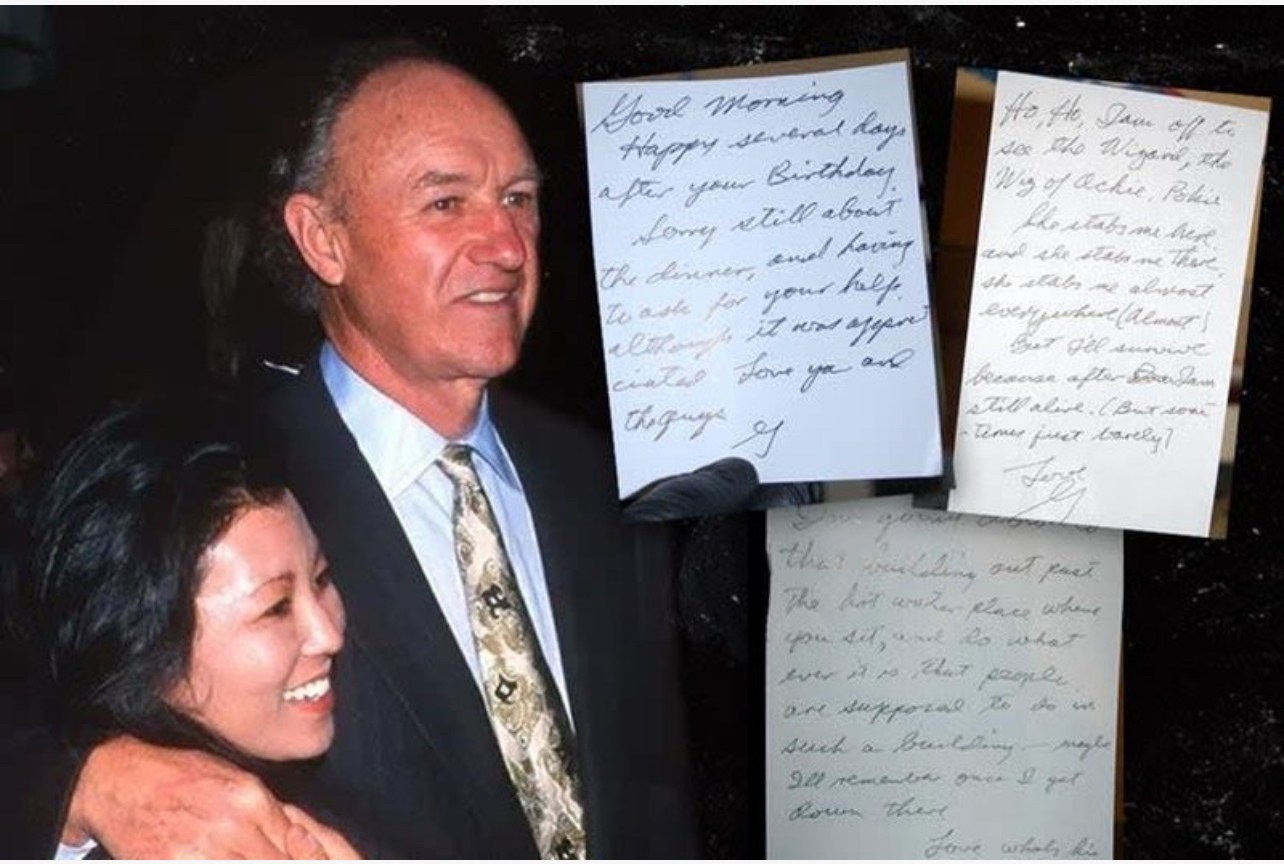 Good Morning
Happy several days
after your Birthday.
Sorry still about
the dinner, and having
to ask for your help.
although it was appre
ciated Love ya and
the guys
G
Ho, Ho, I am off to
see the Wizard, the
Wiz of Ochie, Pokie
She stabs me here,
and she stabs me there,
she stabs me almost
everywhere (Almost!
But I'll survive
because after I am
still alive. (But some
-times just barely)
Love
G
I'm going
that building out past
the hot water place where
you sit, and do what
ever it is that people
are supposed to do in
such a building. – maybe
I'll remember once I get
down there
Love whats his